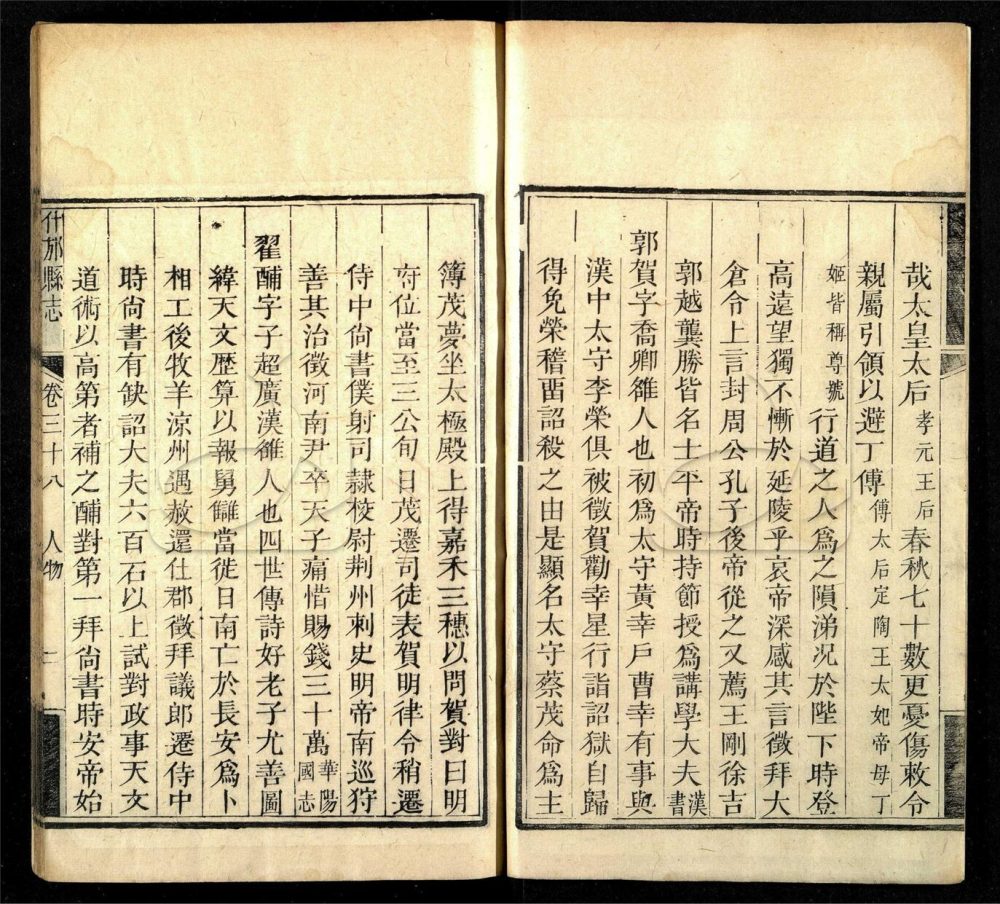 哉太皇太后孝元王后春秋七十數更憂傷敕令
親屬引領以避丁傅傅太后定陶王太妃帝母丁
姬皆稱尊號行道之人爲之隕涕况於陛下時登
高遠望獨不慚於延陵乎哀帝深感其言徵拜大
倉令上言封周公孔子後帝從之又薦王剛徐吉
郭越龔勝皆名士平帝時持節授爲講學大夫漢書
郭賀字喬卿雒人也初爲太守黃幸戶曹幸有事與
漢中太守李榮俱被徵賀勸幸星行詣詔獄自歸
得免榮稽畱詔殺之由是顯名太守蔡茂命爲主
簿茂夢坐太極殿上得嘉禾三穗以問賀對曰明
府位當至三公旬日茂遷司徒表賀明律令稍遷
侍中尚書僕射司隷校尉荆州刺史明帝南巡狩
善其治徵河南尹卒天子痛惜賜錢三十萬華陽國志
翟酺字子超廣漢雒人也四世傳詩好老子尤善圖
緯天文歷算以報舅讎當徙日南亡於長安爲卜
相工後牧羊涼州遇赦還仕郡徵拜議郎遷侍中
時尚書有缺詔大夫六百石以上試對政事天文
道術以高第者補之酺對第一拜尚書時安帝始
什邡縣志 卷三十八 人物 二